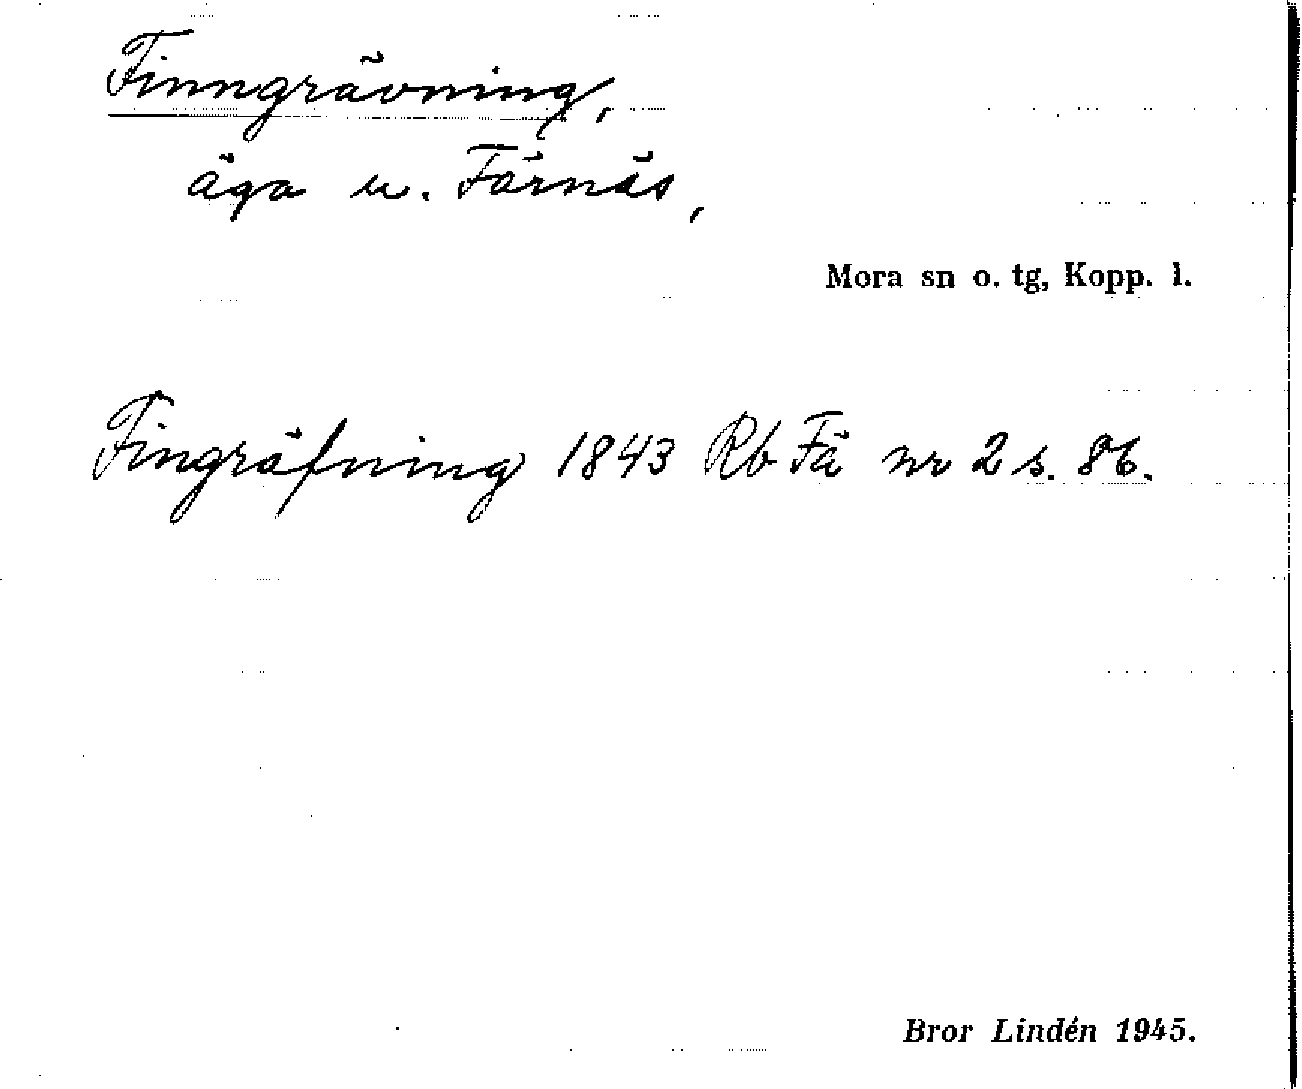 Finngrävning,
äga u. Färnäs,
Mora sn o. tg, Kopp. l.
Fingräfning 1843 Rb Fä nr 2 s. 86.
Bror Lindén 1945.